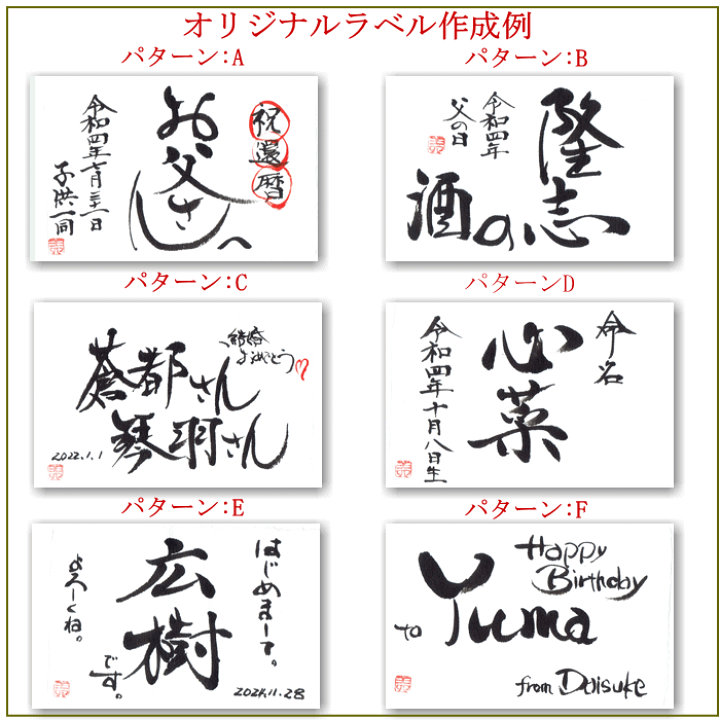 オリジナルラベル作成例
パターン:A
祝還暦
お父さんへ
令和四年七月三十一日
子供一同
パターン:B
隆志
の
酒
令和四年
父の日
パターン:C
結婚
おめでとう♡
蒼都さん
琴羽さん
2022.1.1
パターンD
命名
心菜
令和四年十月八日生
パターン:E
はじめまして。
広樹
です。
よろしくね。
2024.11.28
パターン:F
Happy
Birthday
to Yuma
from Daisuke